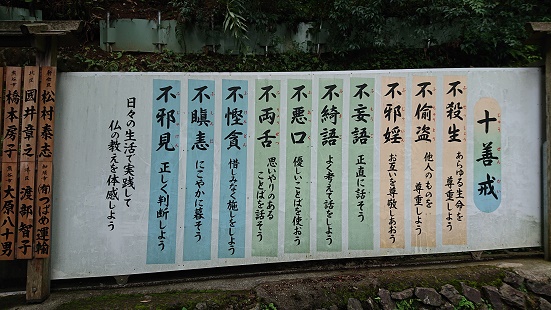 十善戒
不殺生
あらゆる生命を
尊重しよう
不偸盗
他人のものを
尊重しよう
不邪婬
お互いを尊敬しあおう
不妄語
正直に話そう
不綺語
よく考えて話をしよう
不悪口
優しいことばを使おう
不両舌
思いやりのある
ことばを話そう
不慳貪
惜しみなく施しをしよう
不瞋恚
にこやかに暮そう
不邪見
正しく判断しよう
日々の生活で実践して
仏の教えを体感しよう
松村泰志
㈲つばめ運輸
國井章之
渡部智子
橋本房子
大原八十男